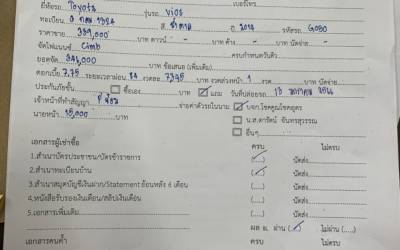 ยี่ห้อรถ Toyota รุ่นรถ Vios เบอร์โทร
ทะเบียน 3 กฒ 1324 สี ดำ ปี 2014 รหัสรถ G080
ราคาขาย 339,000 บาท ดาวน์ บาท ค้าง บาท นัดจ่าย
จัดไฟแนนซ์ Cimb ครบกำหนดวันคิว
ยอดจัด 341,000 บาท ข้อเสนอ (เพิ่มเติม)
ดอกเบี้ย 7.75 ระยะเวลาผ่อน 84 งวดละ 7345 บาท งวดล่วงหน้า 1 งวด บาท นัดจ่าย
ประกันภัยชั้น ซื้อเอง บาท แถม วันที่ปล่อยรถ 13
เจ้าหน้าที่ทำสัญญา จ่ายค่าตัวรถในนาม บจก.โชคคูณโชคอุดร
นายหน้า 15,000 บาท น.ส.ดารัตน์ จันทรสุวรรณ
อื่นๆ
เอกสารผู้เช่าซื้อ ครบ ไม่ครบ
1.สำเนาบัตรประชาชน/บัตรข้าราชการ (....) นัดส่ง
2.สำเนาทะเบียนบ้าน (....) นัดส่ง
3.สำเนาสมุดบัญชีเงินฝาก/Statement ย้อนหลัง 6 เดือน (....) นัดส่ง
4.หนังสือรับรองเงินเดือน/สลิปเงินเดือน (....) นัดส่ง
5.เอกสารเพิ่มเติม ผล อ. ผ่าน (....) ไม่ผ่าน (....)
เอกสารคนค้ำ ครบ ไม่ครบ